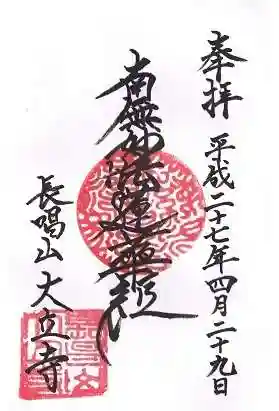 奉拝
平成二十七年四月二十九日
南無妙法蓮華経
長唱山
大立寺